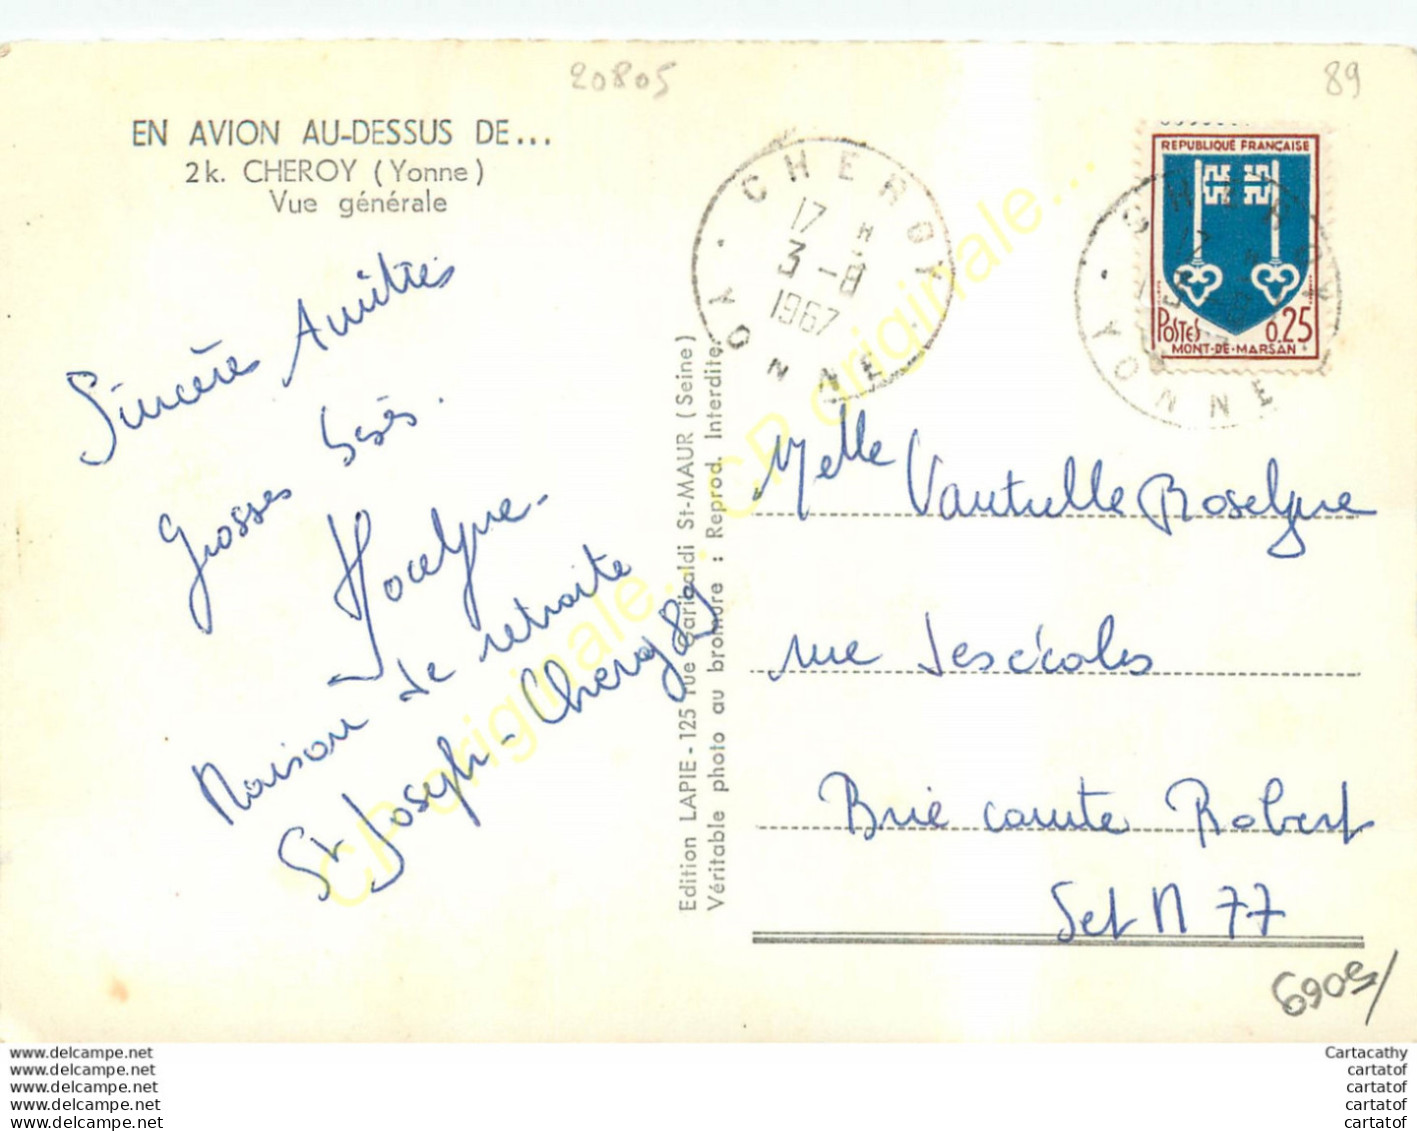 20805
89
EN AVION AU-DESSUS DE...
2k. CHEROY (Yonne)
Vue générale
CHEROY
17 H
3-8
1967
YONNE
REPUBLIQUE FRANÇAISE
POSTES 0,25
MONT-DE-MARSAN
CHEROY
YONNE
Sincères Amitiés
Grosses bises.
Jocelyne-
Maison de retraite
St Joseph-Cheroy 89
Edition LAPIE - 125 rue Garibaldi St-MAUR (Seine)
Véritable photo au bromure : Reprod. Interdite.
CP originale... CP originale...
Melle Vautrelle Roselyne
rue des écoles
Brie comte Robert
Set M 77
5069/
www.delcampe.net
www.delcampe.net
www.delcampe.net
www.delcampe.net
www.delcampe.net
Cartacathy
cartatof
cartatof
cartatof
cartatof